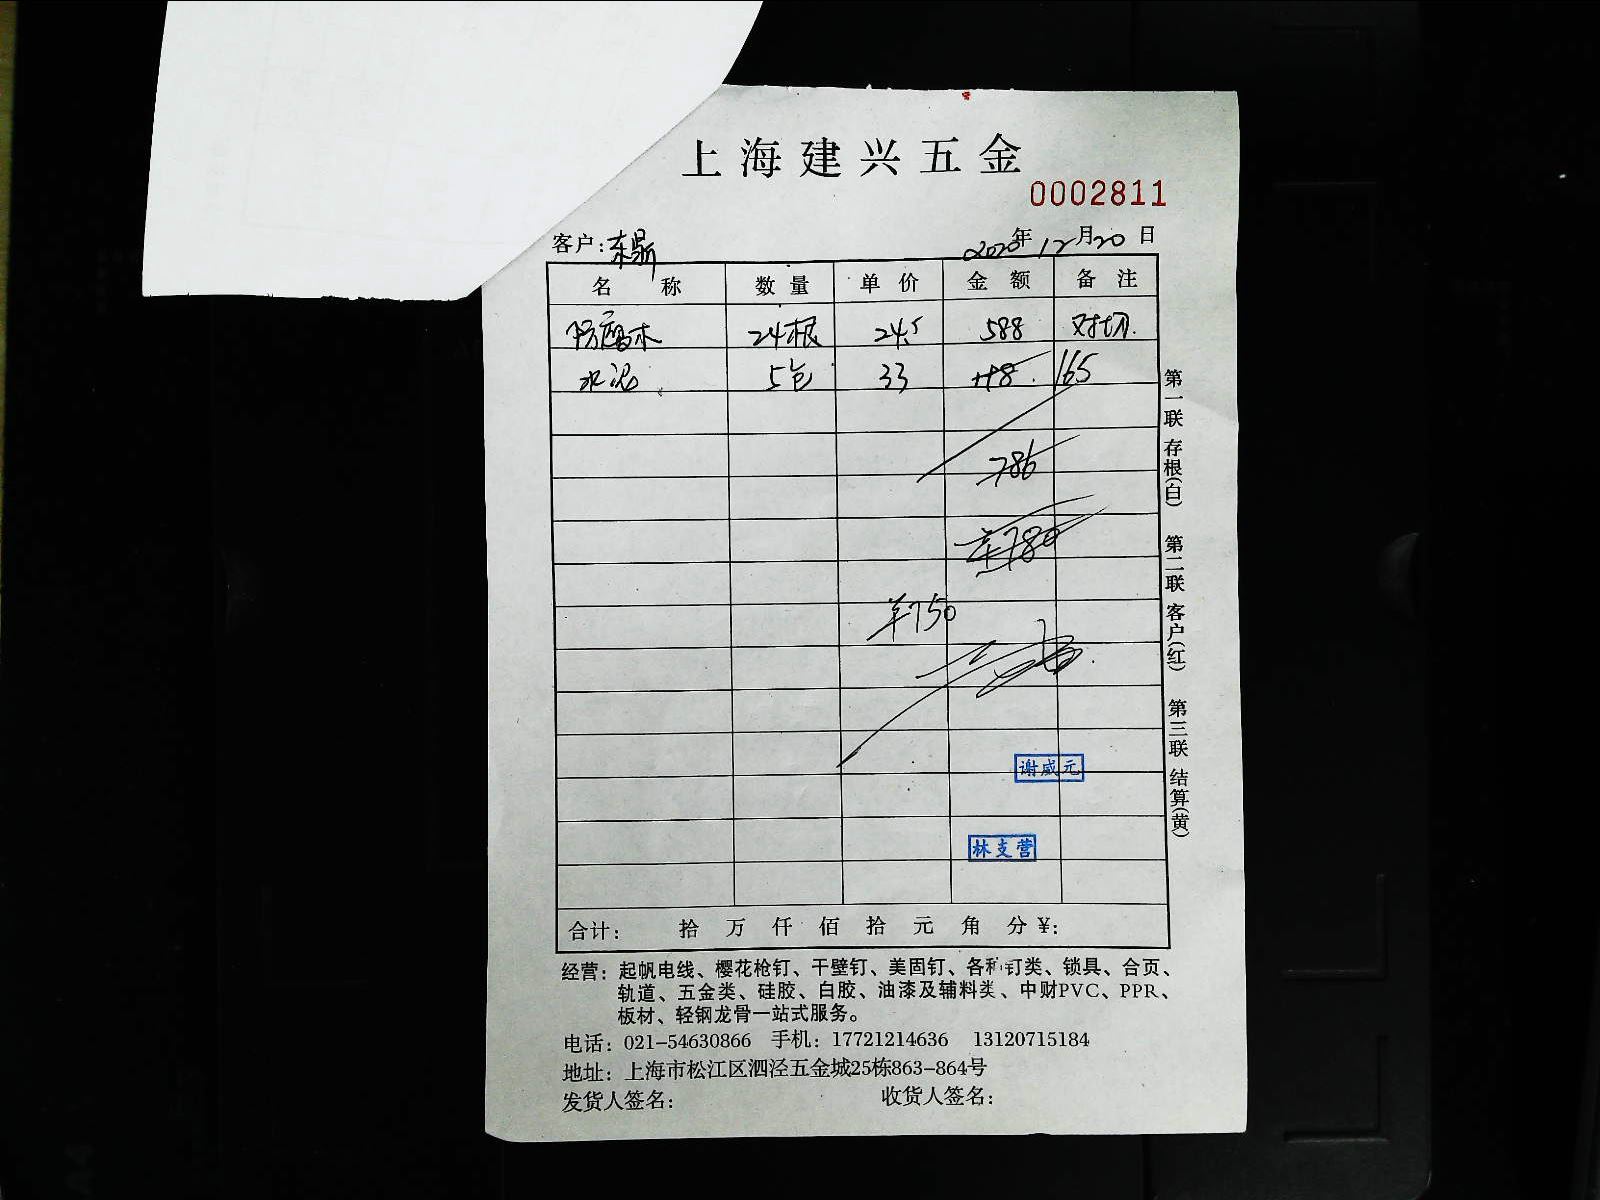 上海建兴五金
0002811
客户:东鼎 2020年12月20日
名 称 数量 单价 金额 备注
防腐木 24根 24.5 588 对切.
水泥 5包 33 165
786
780
¥750
谢威元
林支营
合计: 拾 万 仟 佰 拾 元 角 分 ¥:
经营: 起帆电线、樱花枪钉、干壁钉、美固钉、各种钉类、锁具、合页、
轨道、五金类、硅胶、白胶、油漆及辅料类、中财PVC、PPR、
板材、轻钢龙骨一站式服务。
电话: 021-54630866 手机: 17721214636 13120715184
地址: 上海市松江区泗泾五金城25栋863-864号
发货人签名: 收货人签名:
第一联 存根(白) 第二联 客户(红) 第三联 结算(黄)